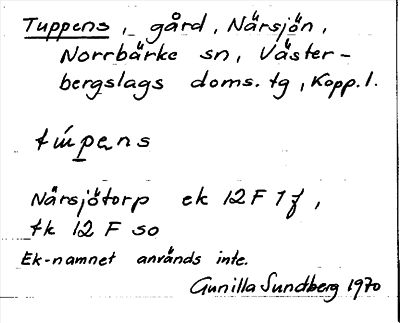 Tuppens, gård, Närsjön,
Norrbärke sn, Väster-
bergslags doms. tg, Kopp. l.
Närsjötorp ek 12 F 1 f,
tk 12 F so
Ek-namnet används inte.
Gunilla Sundberg 1970